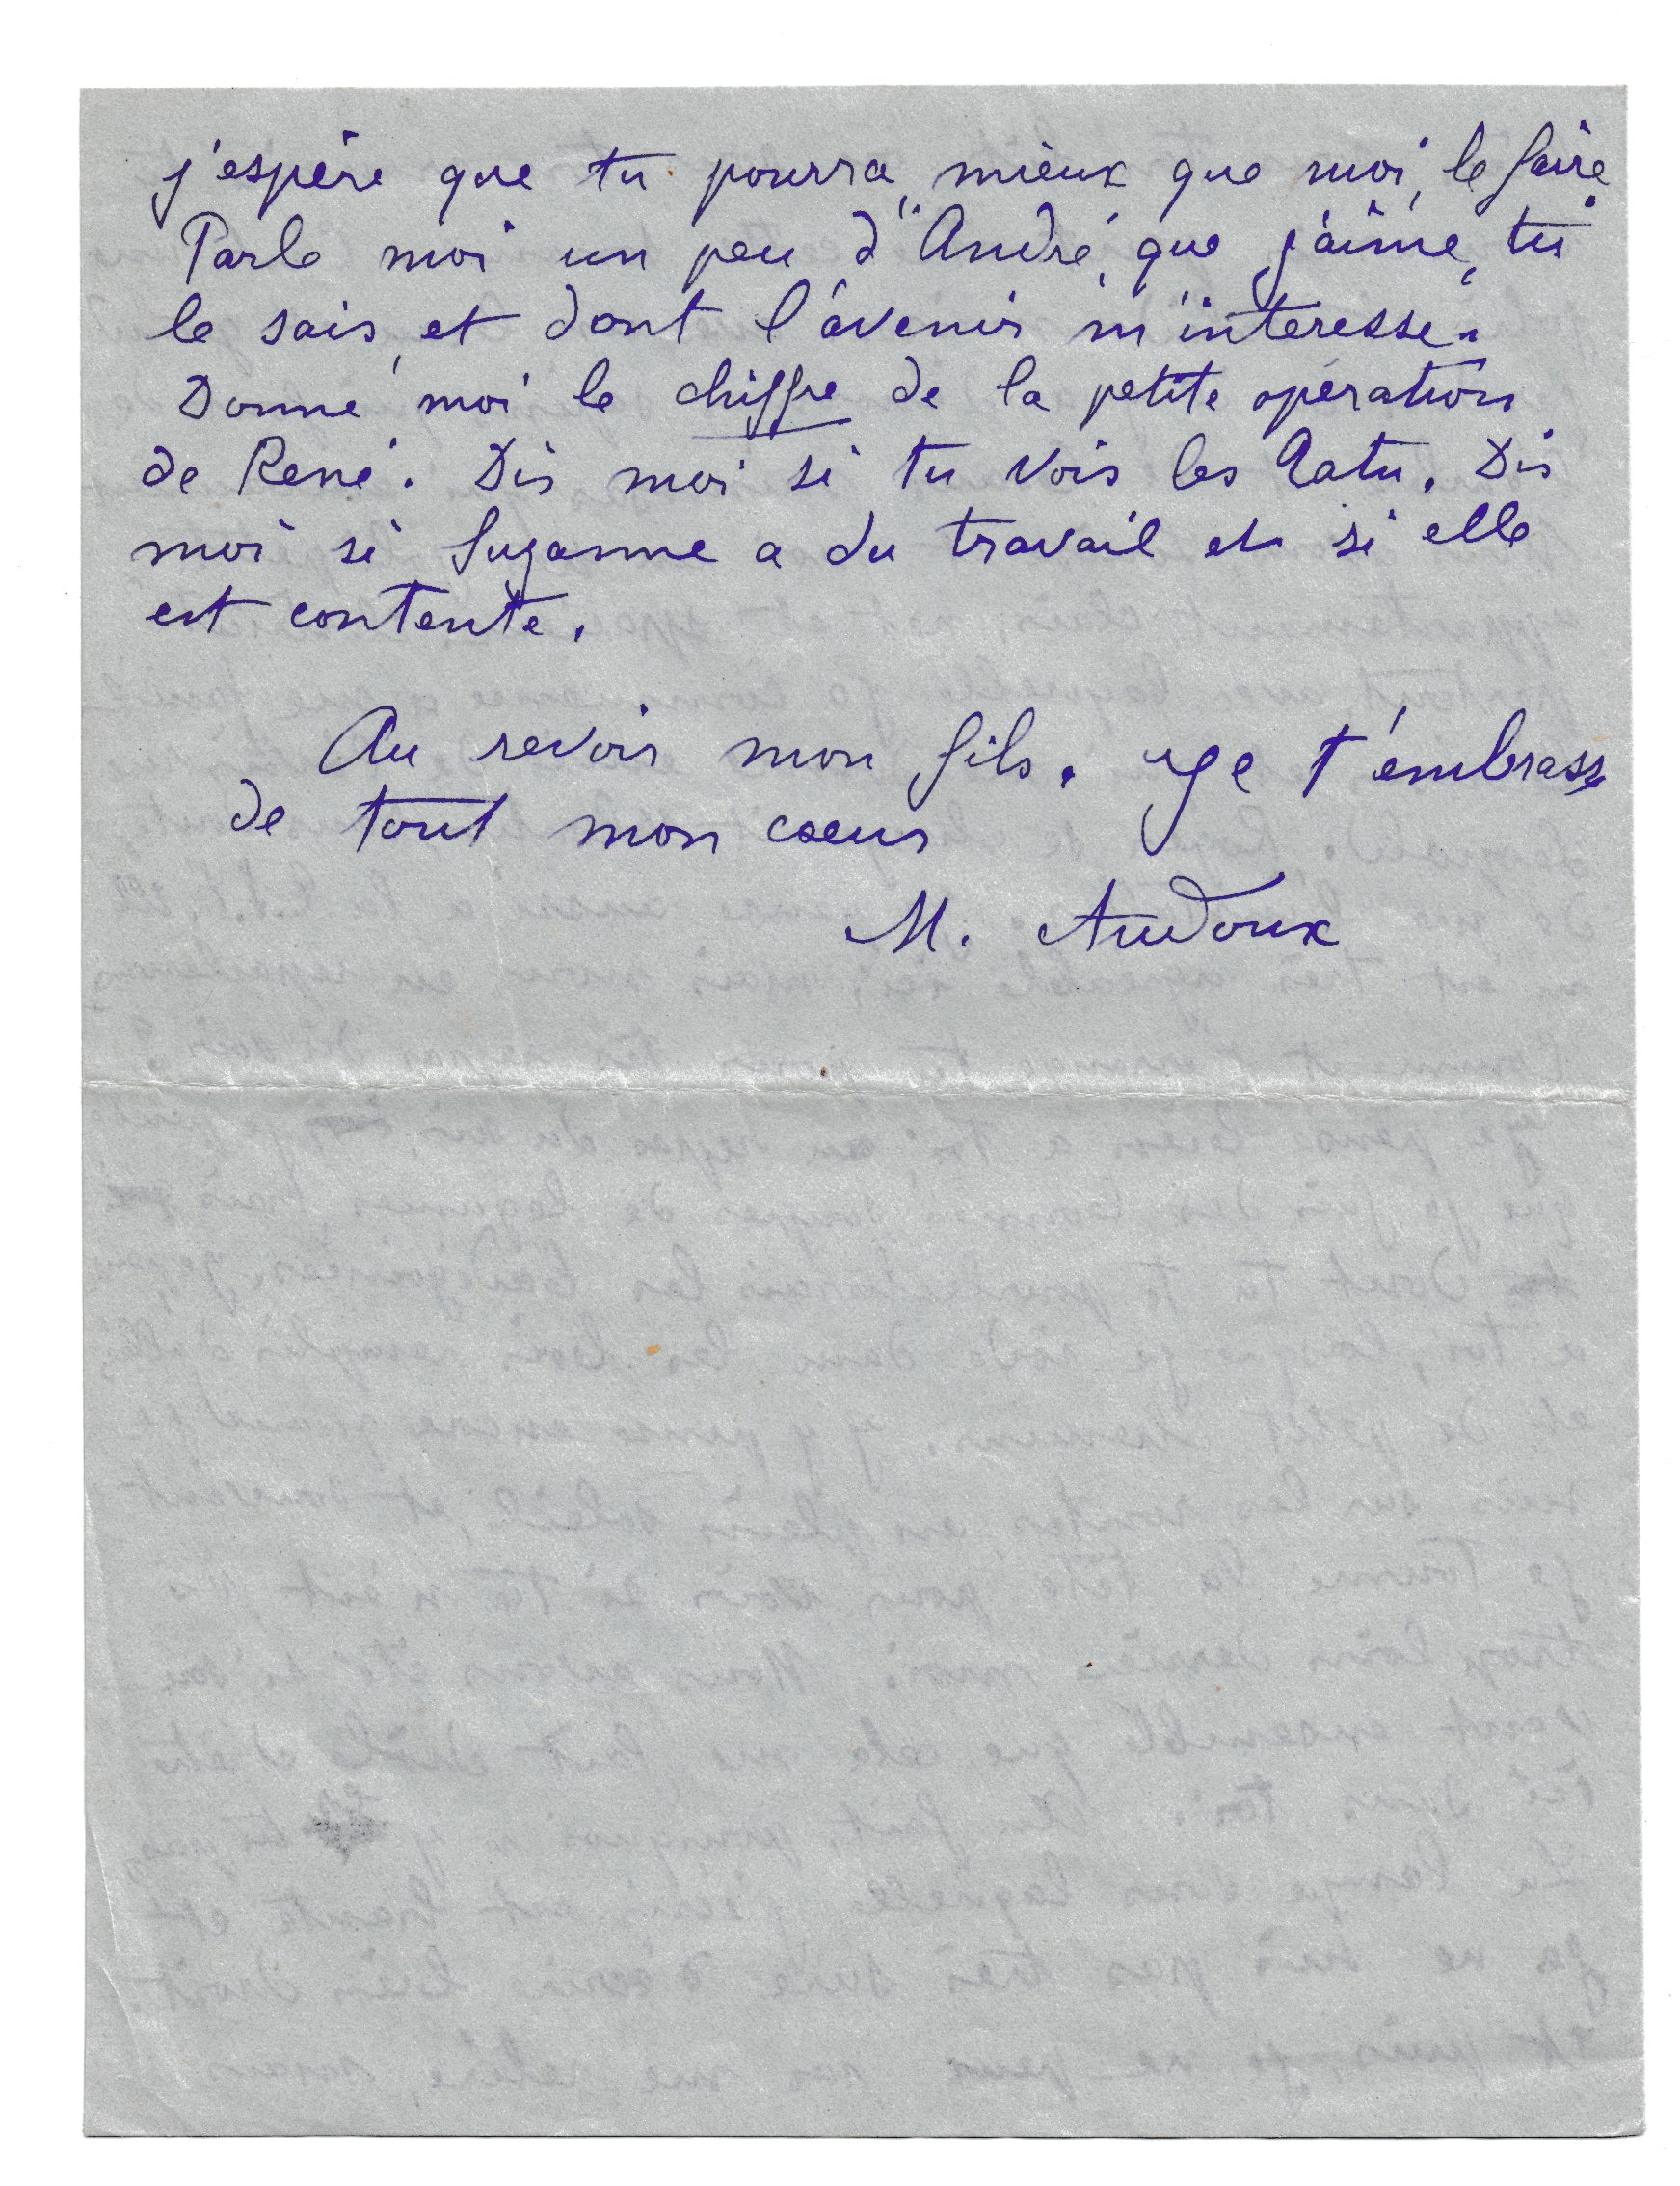 j'espère que tu pourra, mieux que moi, le faire.
Parle moi un peu d'André, que j'aime, tu
le sais, et dont l'avenir m'interesse.
Donne moi le chiffre de la petite opération
de René. Dis moi si tu vois les Dis
moi si Suzanne a du travail et si elle
est contente.
Au revoir mon fils. Je t'embrasse
de tout mon coeur
M. Audoux